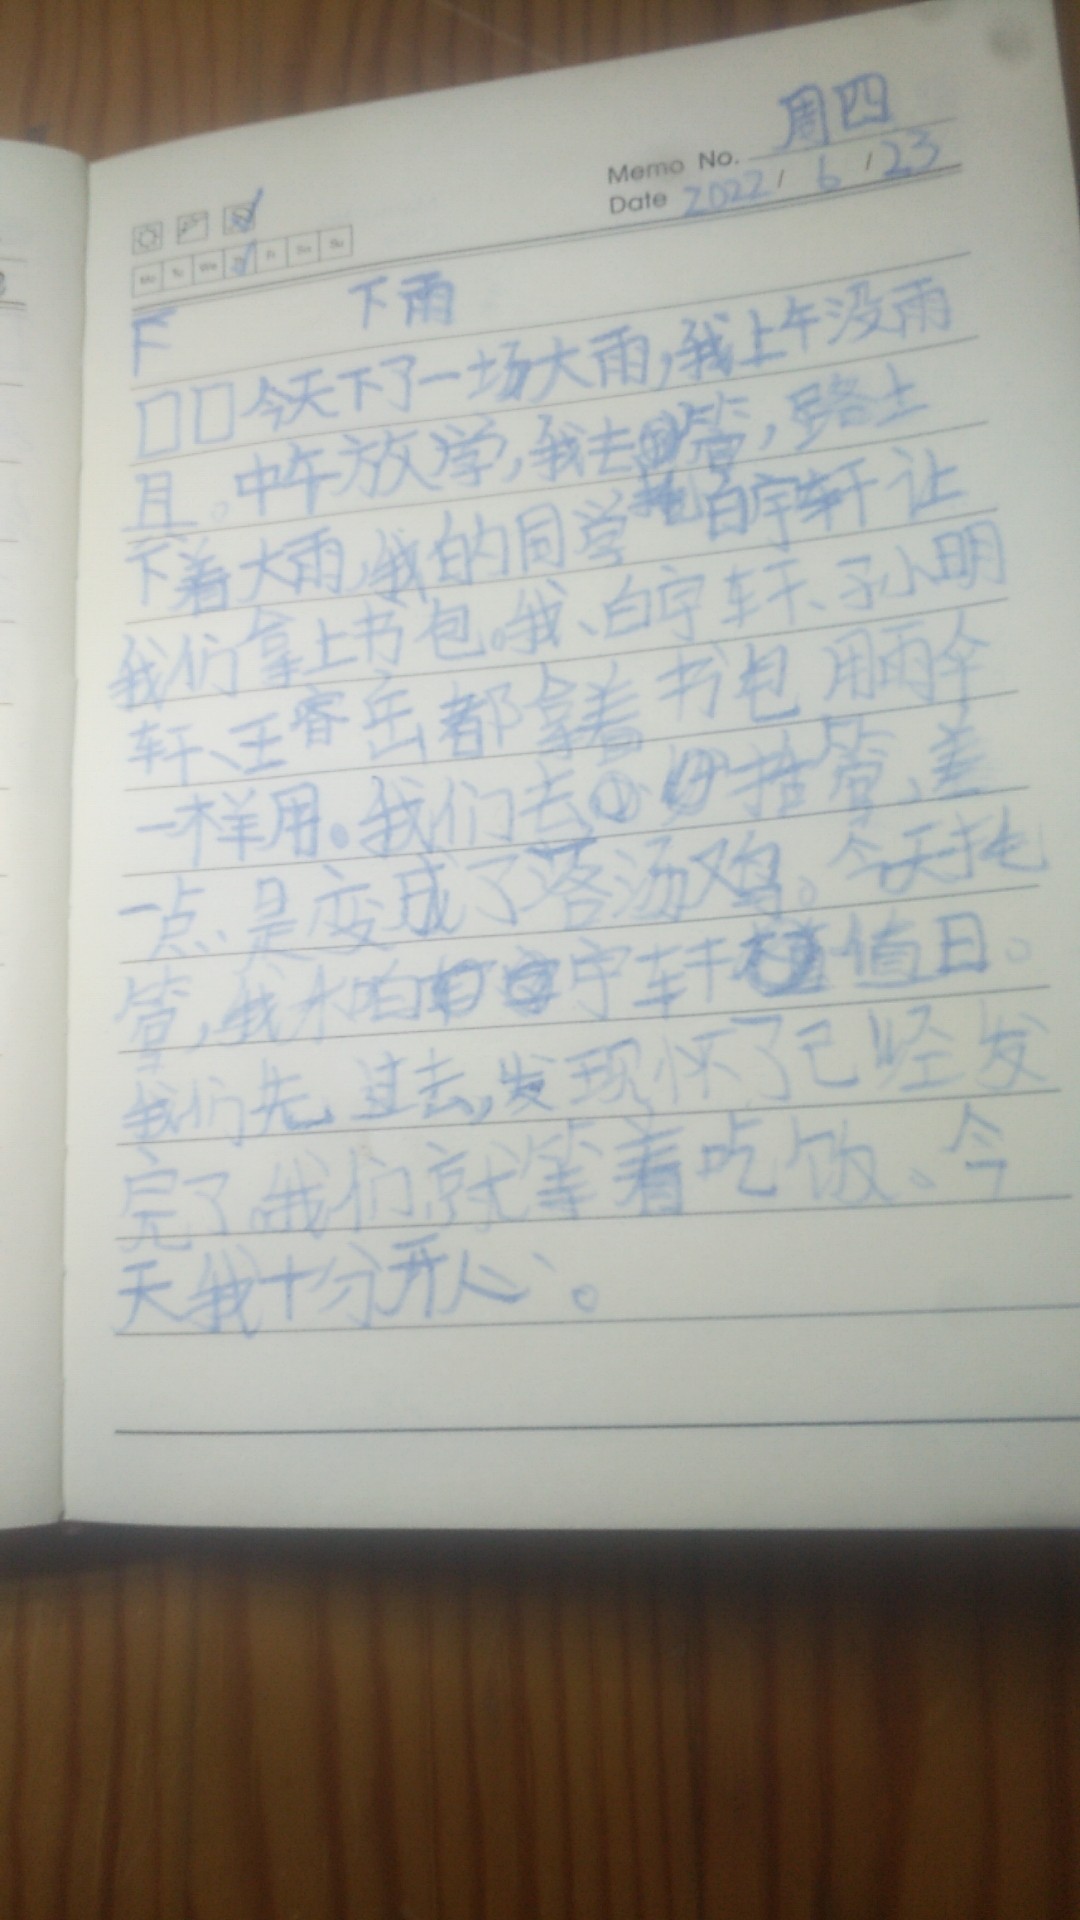 周四
Memo No.
Date 2022 / 6 / 23
Mo Tu We Fr Sa Su
下雨
下
今天下了一场大雨，我上午没雨
且。中午放学，我去管，路上
下着大雨，我的同学白宇轩让
我们拿上书包。我、白宇轩、子小明
轩、王睿岳都拿着书包用雨伞
一样用。我们去托管，差
一点是变成了落汤鸡。今天托
管，我和宇轩值日。
我们先过去，发现怀了已经发
完了我们就等着吃饭。今
天我十分开心。